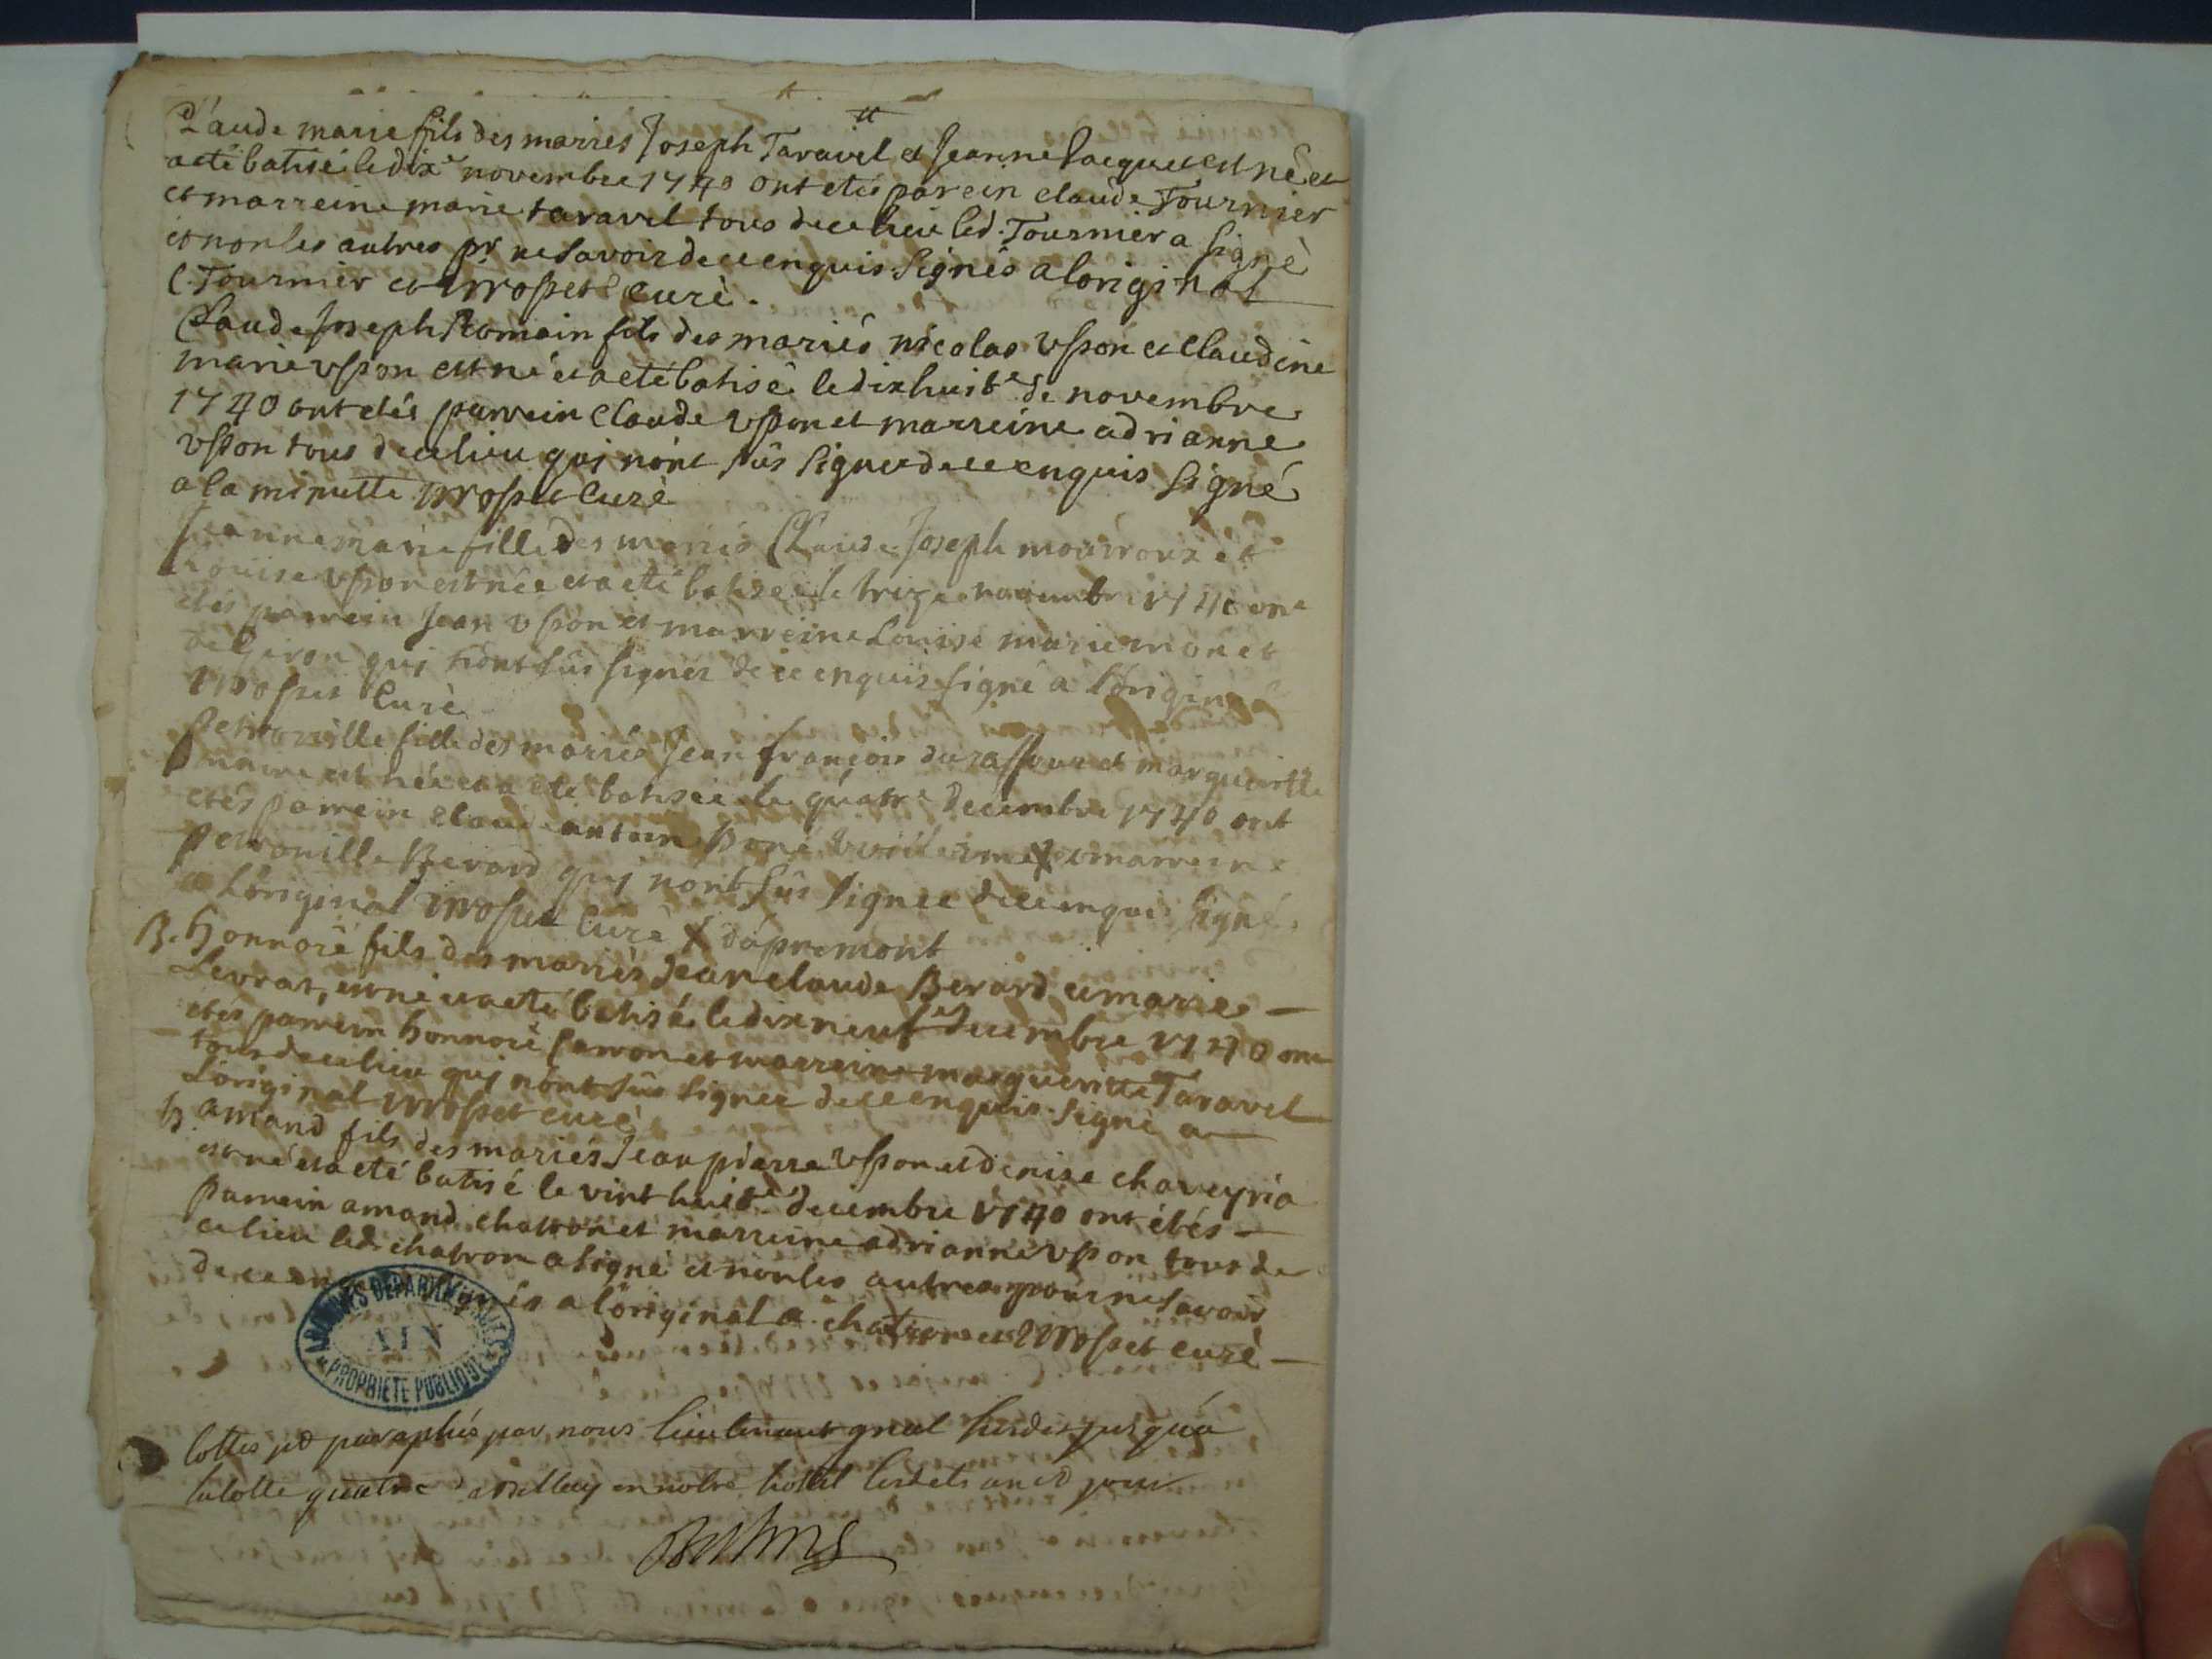 Claude marie fils des mariés Joseph Taravel et Jeanne Jacquet est né et
a eté batisé le dixe novembre 1740 ont etés parein claude Tournier
et marreine marie taravel tous de ce lieu led. Tournier a signè
et non les autres pr ne savoir de ce enquis Signés a loriginal
C. Tournier et prost curè.
Claude Joseph Romain fils des mariés nicolas vsson et Claudine
marie vsson est né et a eté batisé le dixhuite de novembre
1740 ont etés parrein Claude vsson et marreine adrianne
vsson tous de ce lieu qui nônt sûs signer de ce enquis Signé
a la minutte curè
Jeanne marie fille des mariés Claude Joseph mourroux et
Louise vsson est née et a eté batisée le treize novembre 1740 ont
etés parrein Jean vsson et marreine Louise marie monet
qui nônt sûs signer de ce enquis signé a lôriginal
curè
petronille fille des mariés Jean françois durafour et margueritte
est née et a eté batisée le quatre decembre 1740 ont
etés parrein claude antoine et marreine
petronille Berard qui nont sûs signer de ce enquis Signé
a Lôriginal curè X dápremont
B. honnoré fils des mariés Jean claude Berard et marie
Levrat, est né et a eté batisé le dixneufe decembre 1740 ont
etés parrein honnoré et marreine margueritte Taravel
tous de ce lieu qui nônt sûs signer de ce enquis. Signé a
Lôriginal curè
B. amand fils des mariés Jean pierre vsson et denise chaveyria
est né et a eté batisé le vint huite decembre 1740 ont étés
parrein amand chatron et marreine adrianne vsson tous de
ce lieu led. chatron a signé et non les autres pour ne savoir
de ce a lôriginal a. chatron et curè
ARCHIVES DEPARTEMENTALES
AIN
PROPRIETE PUBLIQUE
Cottes et paraphés par nous lieutenant gnal susdit jusquá
la cotte quatre a Belley en notre hottel lesdits an et jour